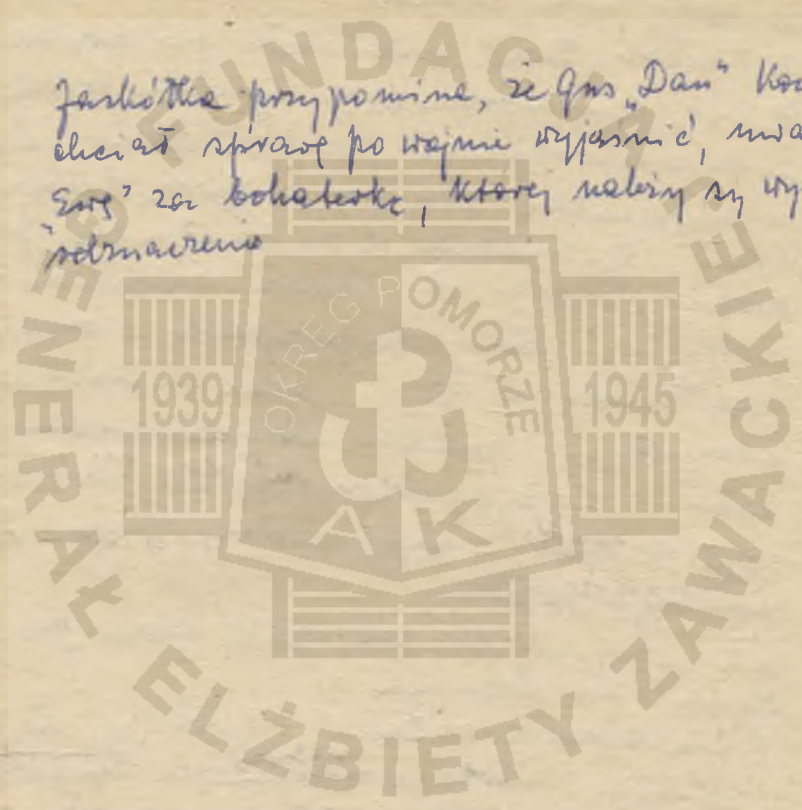 Jaskółka przypomina, że Gus „Dan"
chciał sprawę po wojnie wyjaśnić,
Ewę" za bohaterkę, której należy
odznaczenie
FUNDACJA GENERAŁ ELŻBIETY ZAWACKIEJ
OKRĘG POMORZE
1939
1945
AK